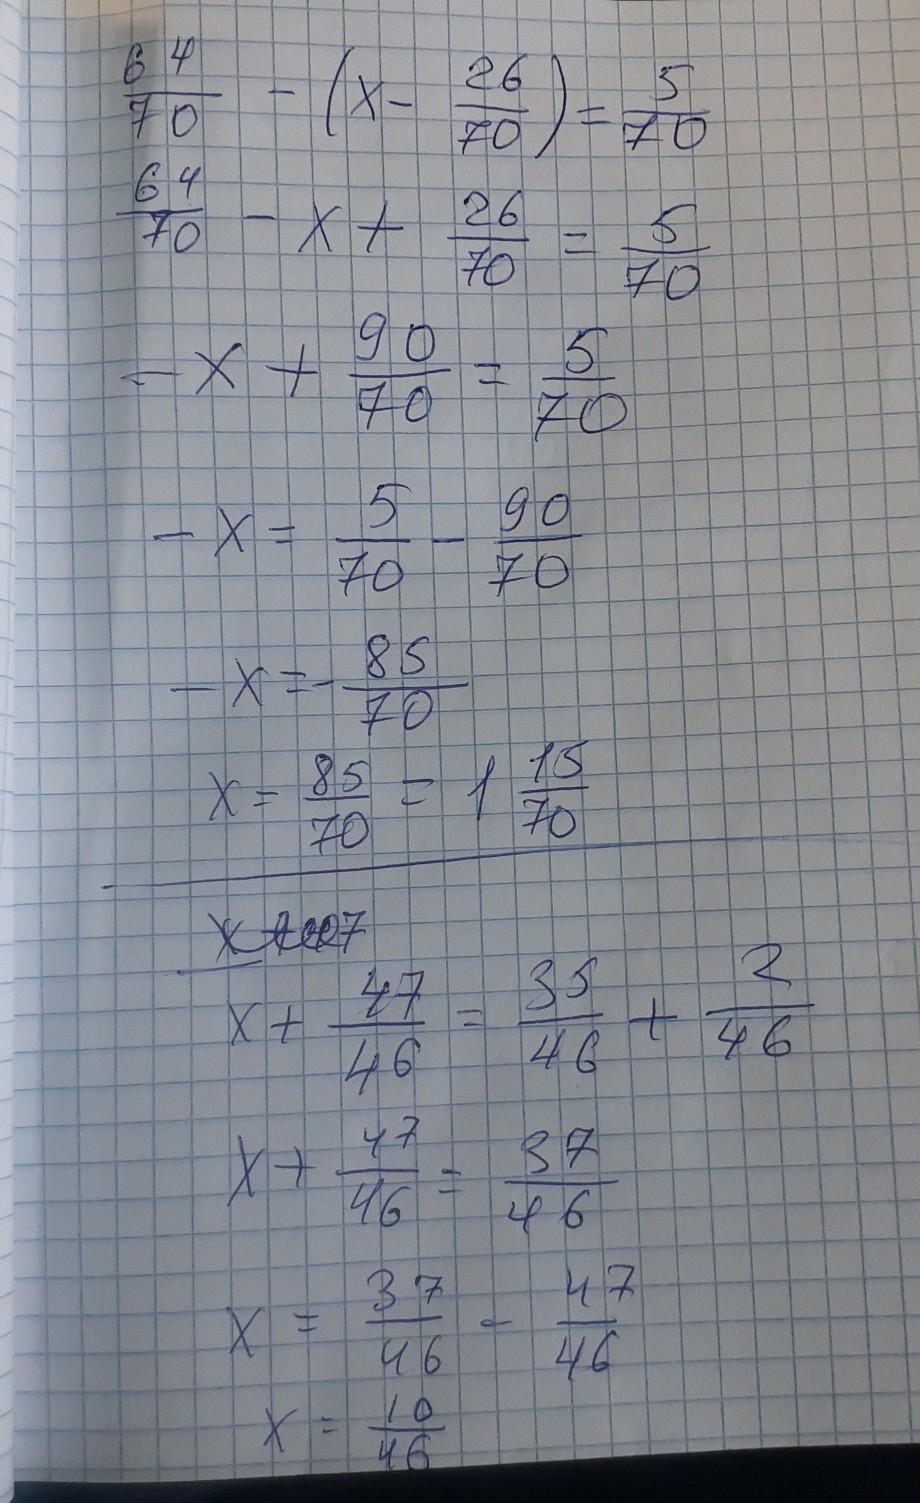 64/70 - (x - 26/70) = 5/70
64/70 - x + 26/70 = 5/70
- x + 90/70 = 5/70
- x = 5/70 - 90/70
- x = - 85/70
x = 85/70 = 1 15/70
x + 47/46 = 35/46 + 2/46
x + 47/46 = 37/46
x = 37/46 - 47/46
x = 10/46